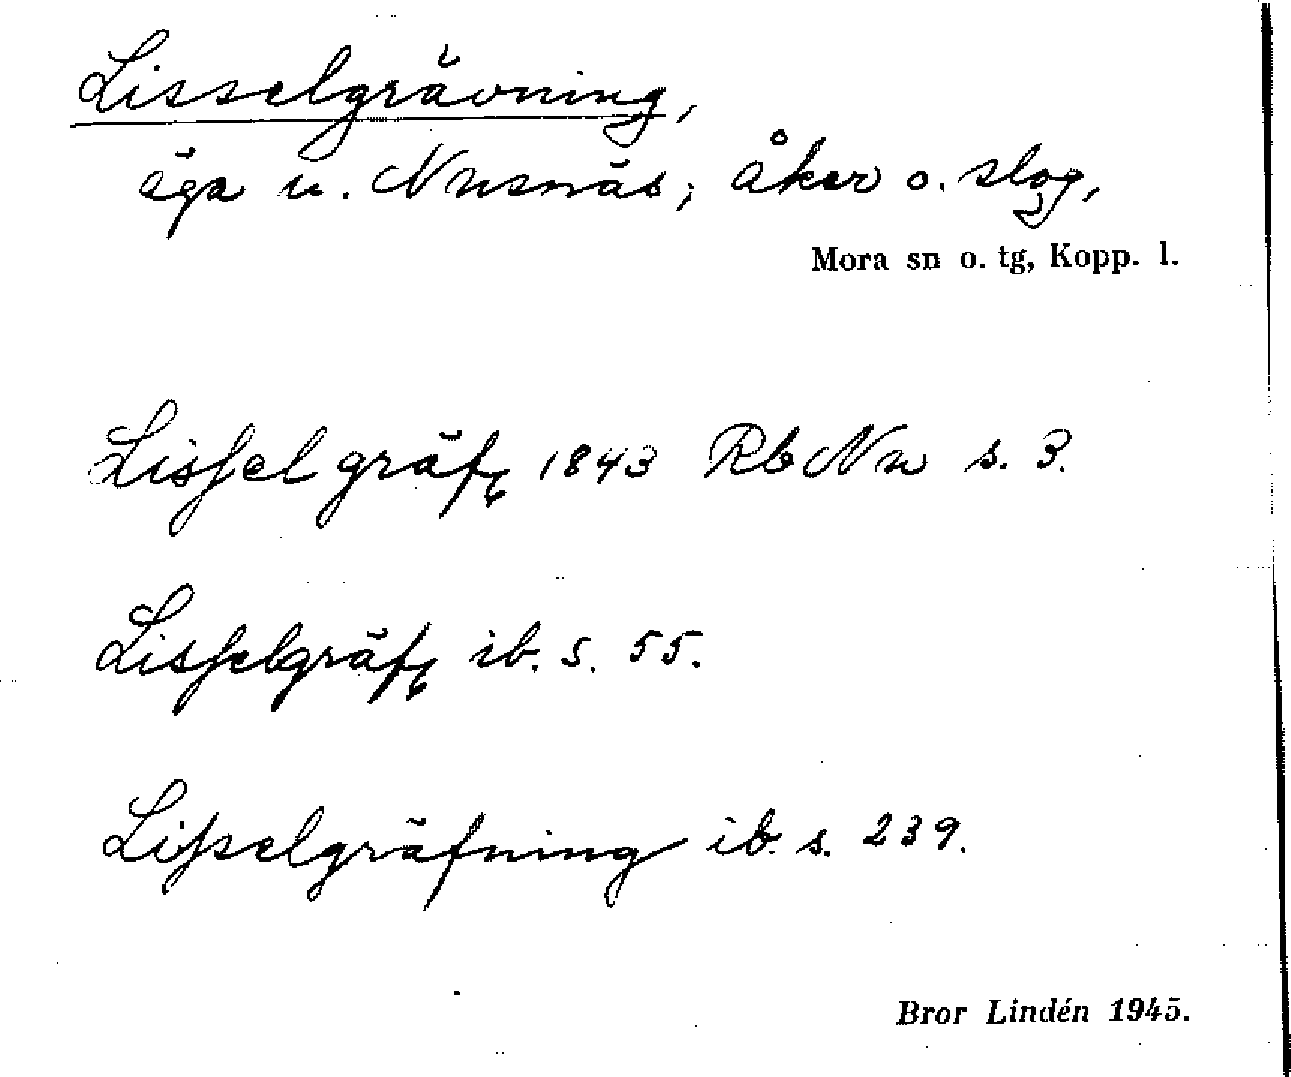 Lisselgrävning,
äga u. Nusnäs; åker o. slog,
Mora sn o. tg, Kopp. l.
Lisselgräfg 1843 RbNu s. 3.
Lisselgräfg ib. s. 55.
Lisselgräfning ib. s. 239.
Bror Lindén 1945.